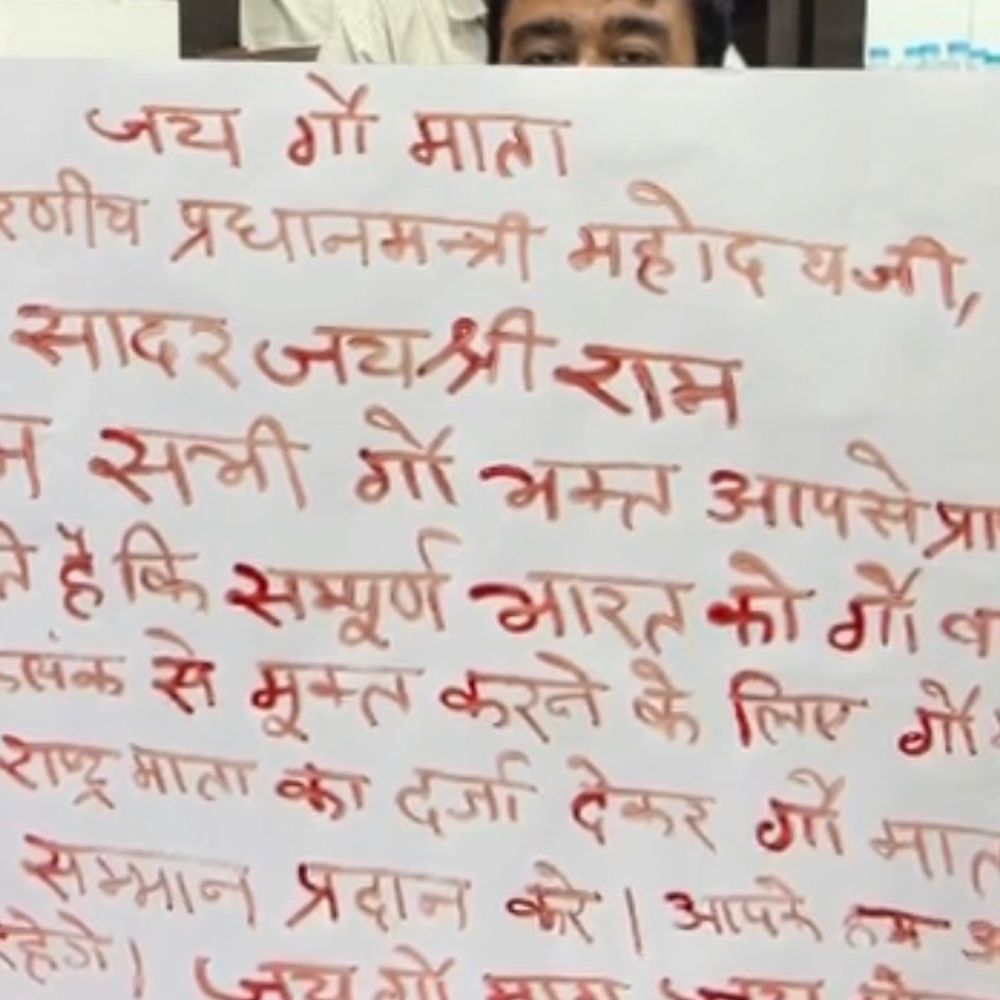 जय गौ माता
रणीय प्रधानमन्त्री महोदय जी,
सादर जय श्री राम
म सभी गौ भक्त आपसे प्रा
ते है कि सम्पूर्ण भारत को गौ व
कलंक से मूक्त करने के लिए गौ
राष्ट्र माता का दर्जा देकर गौ मात
सम्मान प्रदान करे। आपके हम
रहेगे। जय गौ माता जय